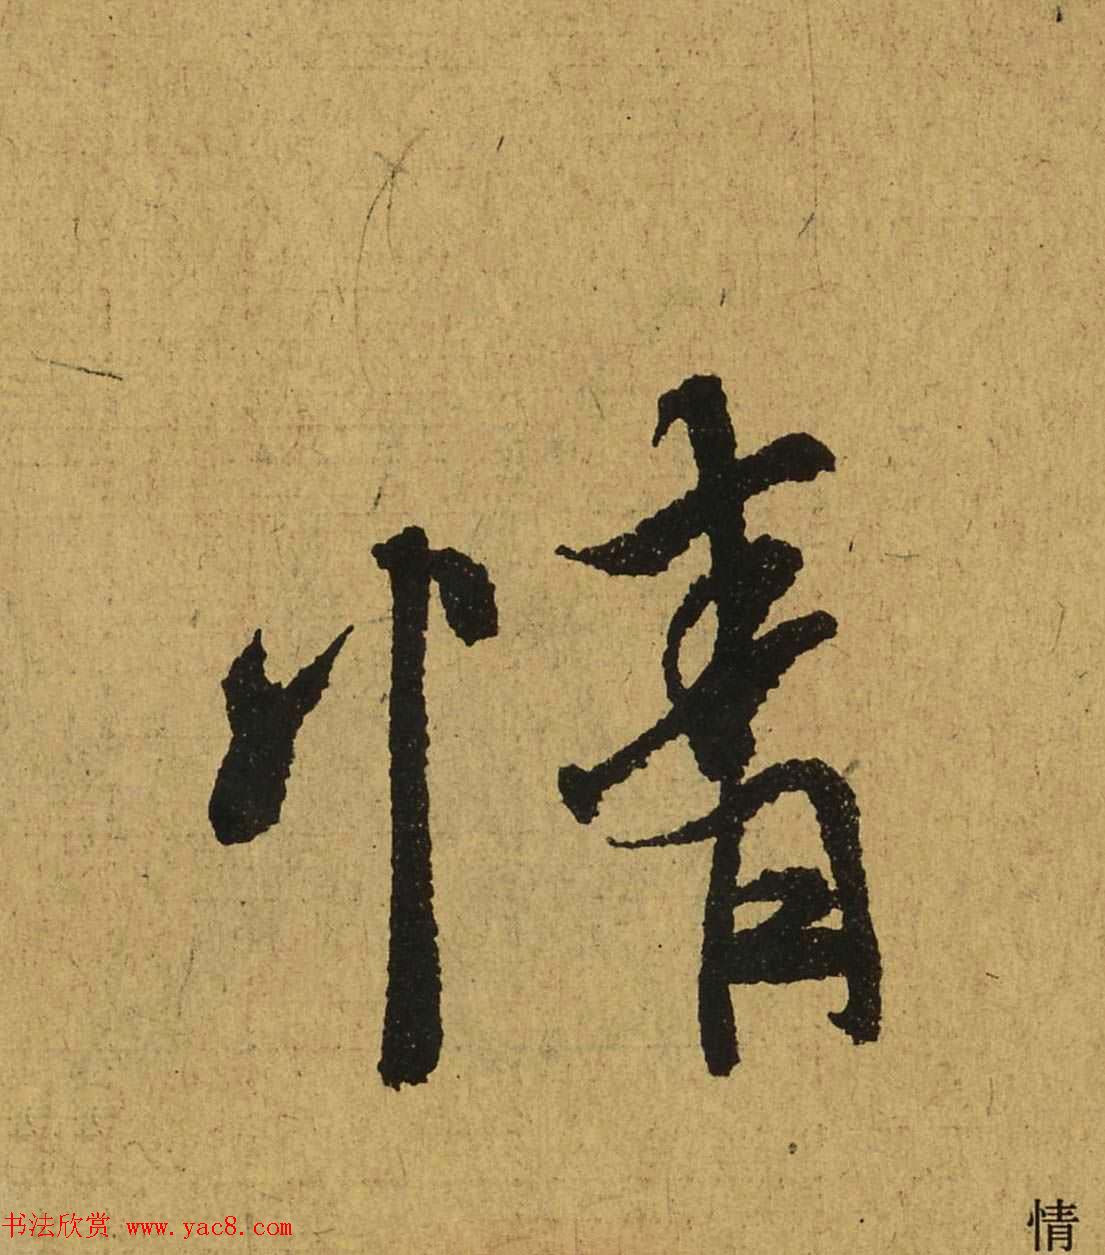 情
情
书法欣赏 www.yac8.com